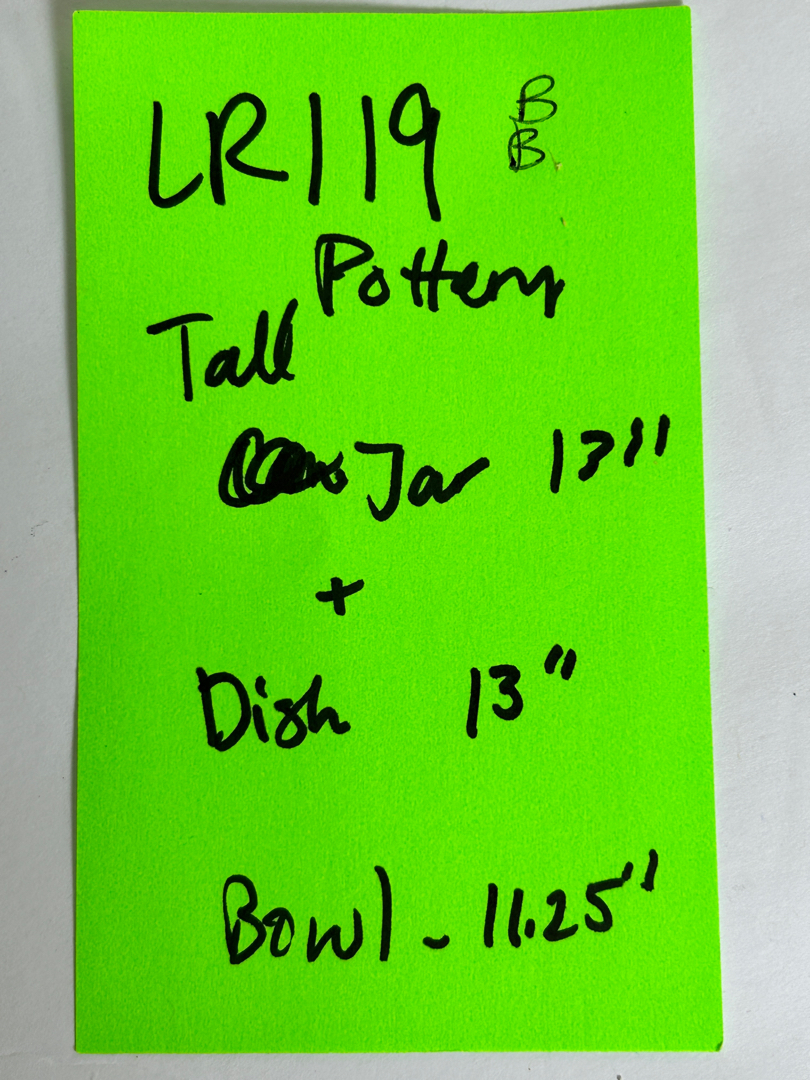 LR119 B
B
Pottery
Tall
Jar 13"
+
Dish 13"
Bowl - 11.25"